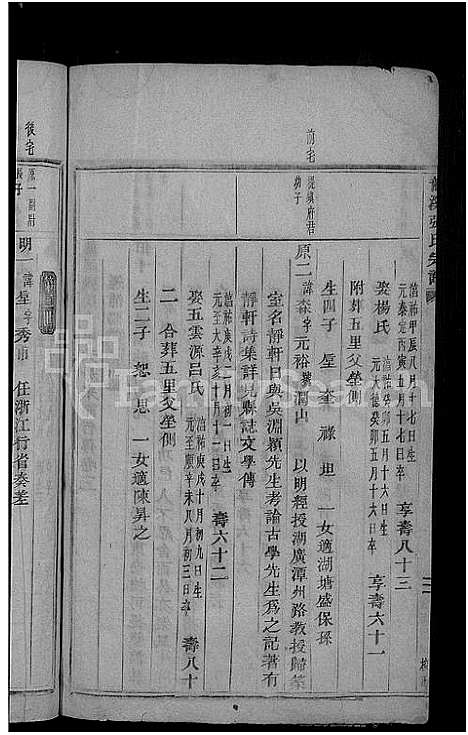 淳祐甲辰八月十七日生
元泰定丙寅五月十七日卒 享壽八十三
娶楊氏 淳祐癸卯五月十六日生
元大德癸卯五月十六日卒 享壽六十一
附葬五里父塋側
生四子 星 奎 祿 坦 一女適湖塘盛保孫
前宅 提鎮府君
幼子
原二 諱森字元裕號澗山 以明經授湖廣潭州路教授歸築
室名靜軒日與吳淵穎先生考論古學先生為之記著有
靜軒詩集詳見縣誌文學傳
淳祐庚戌二月初一日生
元至大辛亥十月十一日卒 壽六十二
娶五雲源呂氏 淳祐庚戌十月初九日生
至順辛未八月初三日卒 壽八十
二 合葬五里父塋側
生二子 恕 思 一女適陳昇之
後宅 原一
長子
明一 諱星字秀甫 任浙江行省奏差